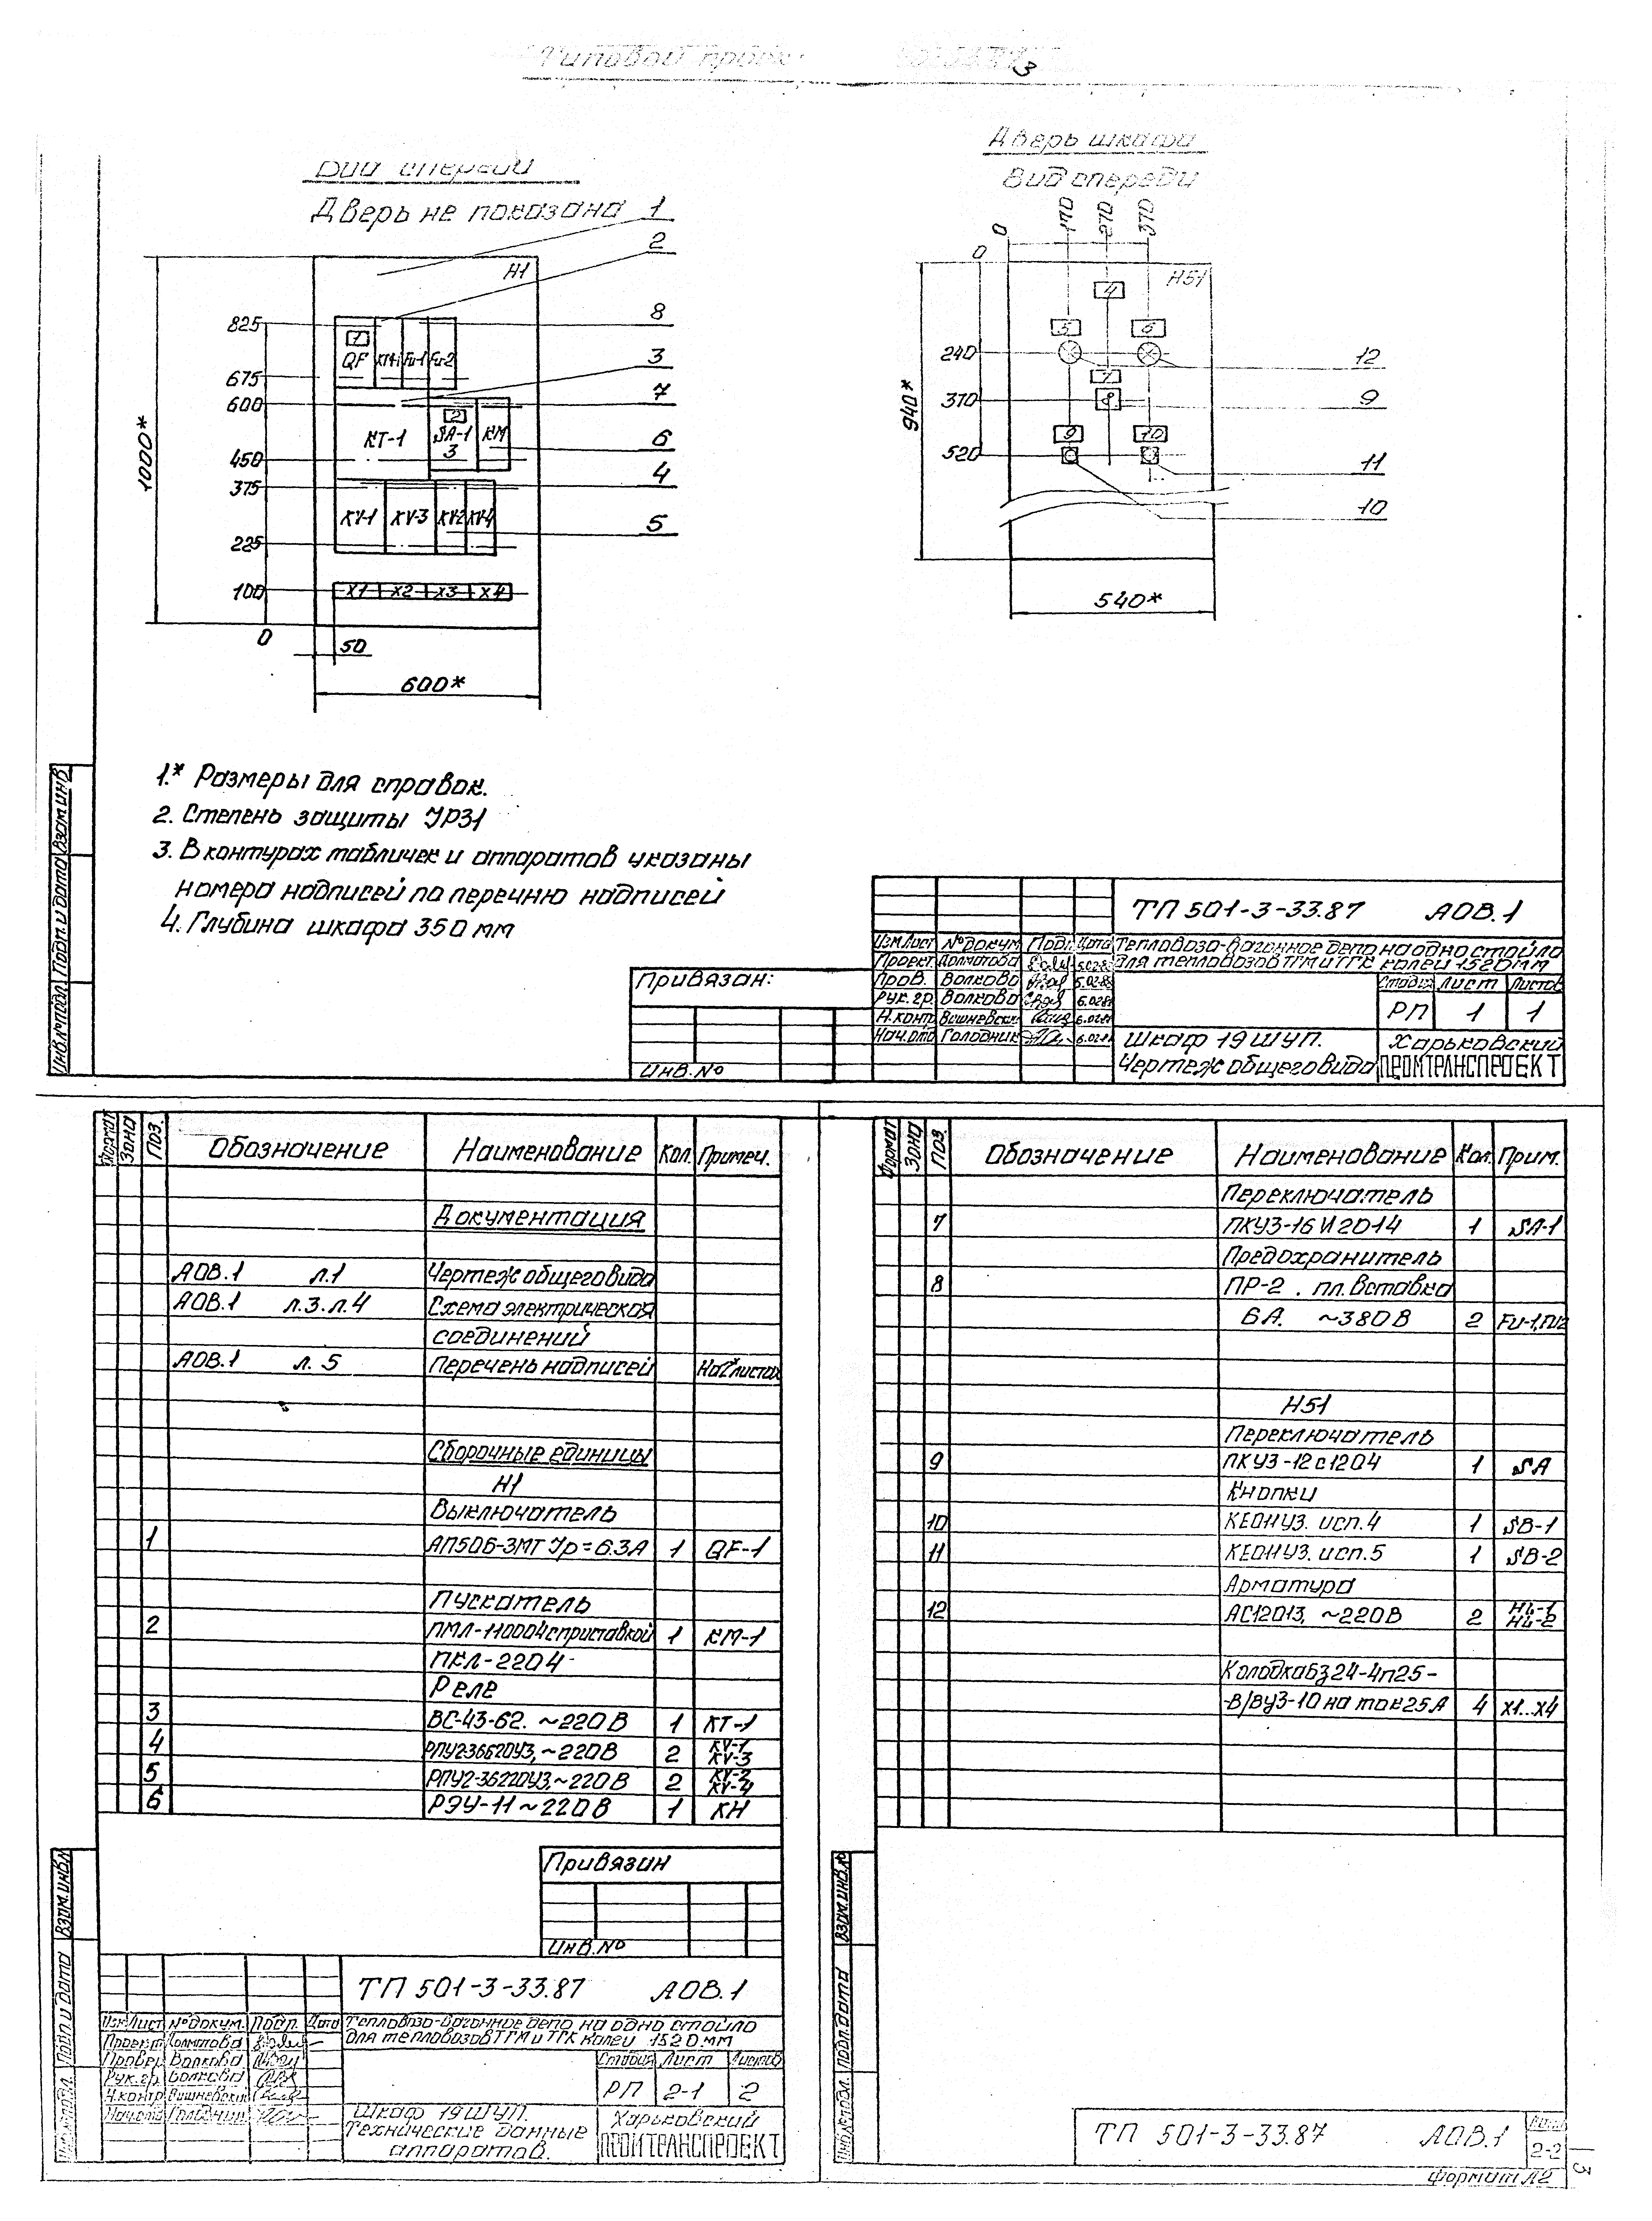 Типовой проек
Вид спереди
Дверь не показана
1
2
8
3
7
6
4
5
Н1
825
675
600
450
375
225
100
0
1000*
1
QF
Fu-1
Fu-2
КТ-1
2
SA-1
3
КМ
KV-1
KV-3
KV-2
KV-4
X1
X2
X3
X4
50
600*
Дверь шкафа
Вид спереди
0
170
270
370
0
Н51
4
5
6
240
12
7
370
8
9
9
10
520
11
10
940*
540*
1.* Размеры для справок.
2. Степень защиты УР31
3. В контурах табличек и аппаратов указаны
номера надписей по перечню надписей
4. Глубина шкафа 350 мм
Взам инв
Подп. и дата
Инв.№ подл.
Привязан:
Инв.№
ТП 501-3-33.87 АОВ.1
Изм. Лист № докум. Подп. Дата
Тепловозо-вагонное депо на одно стойло
для тепловозов ТГМ и ТГК колеи 1520мм
Проект. Долматова
Пров. Волкова
Рук. гр. Волкова
Н. контр Вишневский
Нач. отд Голодник
Стадия Лист Листов
РП 1 1
Шкаф 19 ШУП.
Чертеж общего вида
Харьковский
ПРОМТРАНСПРОЕКТ
Формат Зона Поз. Обозначение Наименование Кол. Примеч.
Документация
АОВ.1 л.1 Чертеж общего вида
АОВ.1 л.3. л.4 Схема электрическая
соединений
АОВ.1 л. 5 Перечень надписей На 2х листах
Сборочные единицы
Н1
Выключатель
1 АП50Б-3МТ Ур = 6.3А 1 QF-1
Пускатель
2 ПМЛ-110004 с приставкой 1 КМ-1
ПКЛ-2204
Реле
3 ВС-43-62. ~220В 1 КТ-1
4 РПУ2-36620У3, ~220В 2 KV-1
KV-3
5 РПУ2-36220У3, ~220В 2 KV-2
KV-4
6 РЭУ-11 ~220В 1 КН
Привязан
Инв.№
Взам.инв.№
Подп и дата
Инв.№ подл.
ТП 501-3-33.87 АОВ.1
Изм. Лист № докум. Подп. Дата
Тепловозо-вагонное депо на одно стойло
для тепловозов ТГМ и ТГК колеи 1520мм
Проект Долматова
Провер. Волкова
Рук. гр. Волкова
Н. контр. Вишневский
Нач. отд Голодник
Стадия Лист Листов
РП 2-1 2
Шкаф 19 ШУП.
Технические данные
аппаратов.
Харьковский
ПРОМТРАНСПРОЕКТ
Формат Зона Поз. Обозначение Наименование Кол. Прим.
Переключатель
7 ПКУ3-16И2014 1 SA-1
Предохранитель
8 ПР-2. пл. вставка
6А. ~380В 2 Fu-1, Fu2
Н51
Переключатель
9 ПКУ3-12с1204 1 SA
Кнопки
10 КЕ011У3. исп.4 1 SB-1
11 КЕ011У3. исп.5 1 SB-2
Арматура
12 АС12013, ~220В 2 HL-1
HL-2
Колодка Бз24-4п25-
-В/ВУ3-10 на ток 25А 4 X1...X4
Взам.инв.№
Подп. дата
Инв.№ подл.
ТП 501-3-33.87 АОВ.1
Лист
2-2
Формат А2
3